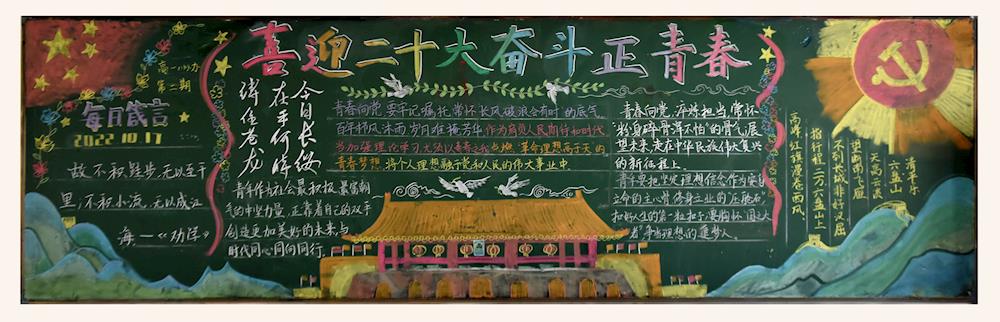 喜迎二十大奋斗正青春
第二期
每月箴言
2022.10.17
故不积跬步,无以至千
里,不积小流,无以成江
海。—《劝学》
今日长缨
在手何时
缚住苍龙
青年作为社会最积极、最富朝
气的中坚力量,正靠着自己的双手
创造更加美好的未来,与
时代同心同向同行。
青春向党,要牢记嘱托,常怀"长风破浪会有时"的底气。
百年栉风沐雨,岁月难掩芳华。作为肩负人民期待和时代
点燃"革命理想高于天"的
青春梦想,将个人理想融于党和人民的伟大事业中。
青春向党,淬炼担当,常怀
"粉身碎骨浑不怕"的骨气。展
望未来,走在中华民族伟大复兴
的新征程上,
青年要把坚定理想信念作为安身
立命的主心骨、修身立业的压舱石,
清平乐
六盘山
天高云淡
望断南飞雁
不到长城非好汉屈
指行程二万六盘山上
高峰红旗漫卷西风